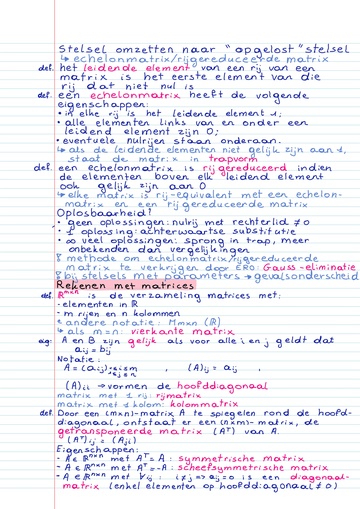 Stelsel omzetten naar "opgelost" stelsel
↳ echelonmatrix/rijgereduceerde matrix
def. het leidende element van een rij van een
matrix is het eerste element van die
rij dat niet nul is
def. een echelonmatrix heeft de volgende
eigenschappen:
• in elke rij is het leidende element 1;
• alle elementen links van en onder een
leidend element zijn 0;
• eventuele nulrijen staan onderaan.
↳ als de leidende elementen niet gelijk zijn aan 1,
staat de matrix in trapvorm
def. een echelonmatrix is rijgereduceerd indien
de elementen boven elk leidend element
ook gelijk zijn aan 0
↳ elke matrix is rij-equivalent met een echelon-
matrix en een rijgereduceerde matrix
Oplosbaarheid?
• geen oplossingen: nulrij met rechterlid ≠ 0
• 1 oplossing: achterwaartse substitutie
• ∞ veel oplossingen: sprong in trap, meer
onbekenden dan vergelijkingen
methode om echelonmatrix/rijgereduceerde
matrix te verkrijgen door ERO: Gauss-eliminatie
bij stelsels met parameters → gevalsonderscheid
Rekenen met matrices
def. ℝᵐˣⁿ is de verzameling matrices met:
- elementen in ℝ
- m rijen en n kolommen
* andere notatie: Mm×n (ℝ)
↳ als m=n: vierkante matrix
eig: A en B zijn gelijk als voor alle i en j geldt dat
aij = bij
Notatie:
A = (aij)1≤i≤m 1≤j≤n , (A)ij = aij ,
(A)ii → vormen de hoofddiagonaal
matrix met 1 rij: rijmatrix
matrix met 1 kolom: kolommatrix
def. Door een (m×n)-matrix A te spiegelen rond de hoofd-
diagonaal, ontstaat er een (n×m)-matrix, de
getransponeerde matrix (Aᵀ) van A.
(Aᵀ)ij = (Aji)
Eigenschappen:
- A ∈ ℝⁿˣⁿ met Aᵀ = A : symmetrische matrix
- A ∈ ℝⁿˣⁿ met Aᵀ = -A : scheefsymmetrische matrix
- A ∈ ℝⁿˣⁿ met ∀i,j : i≠j ⇒ aij = 0 is een diagonaal-
matrix (enkel elementen op hoofddiagonaal ≠ 0)